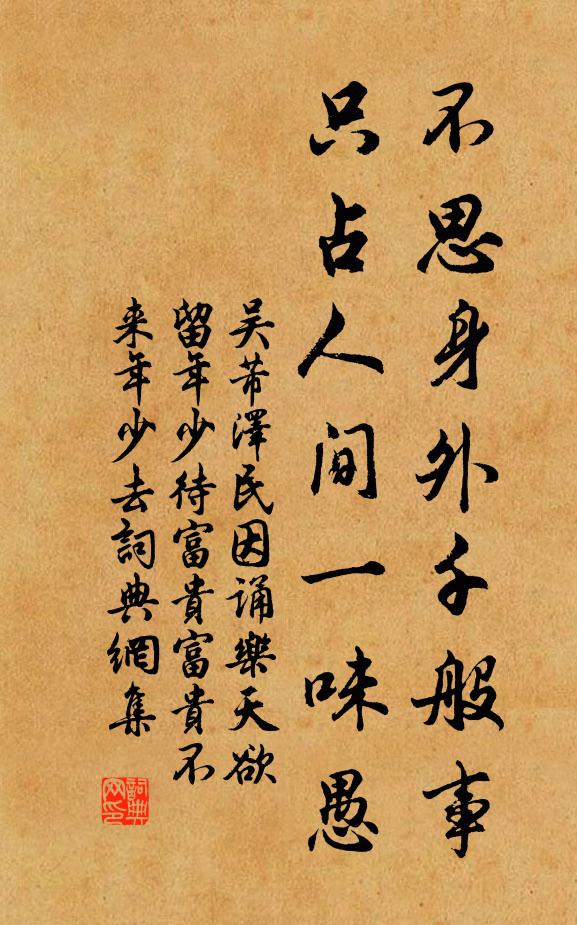 不思身外千般事
只占人间一味愚
吴芾澤民因誦樂天欲
留年少待富貴富貴不
来年少去詞典網集
詞典网印